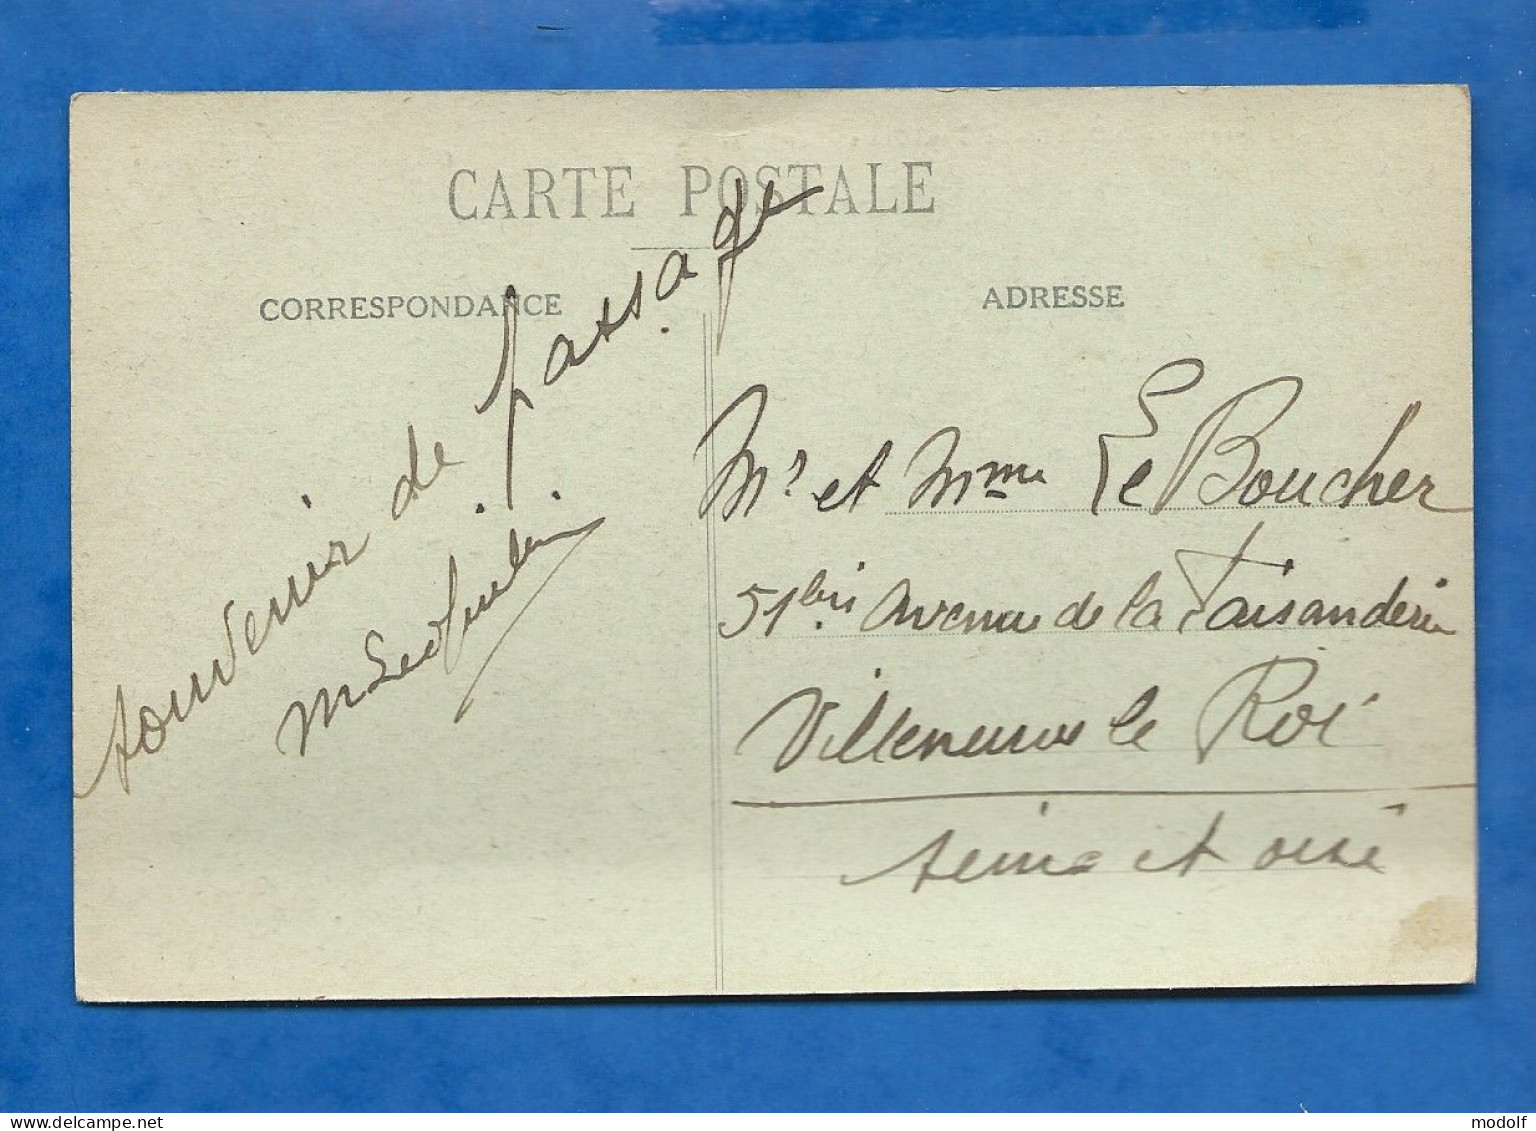 CARTE POSTALE
CORRESPONDANCE
ADRESSE
souvenir de passage
Mr et Mme Le Boucher
51 bis Avenue de la Faisanderie
Villeneuve le Roi
Seine et oise
www.delcampe.net
modolf